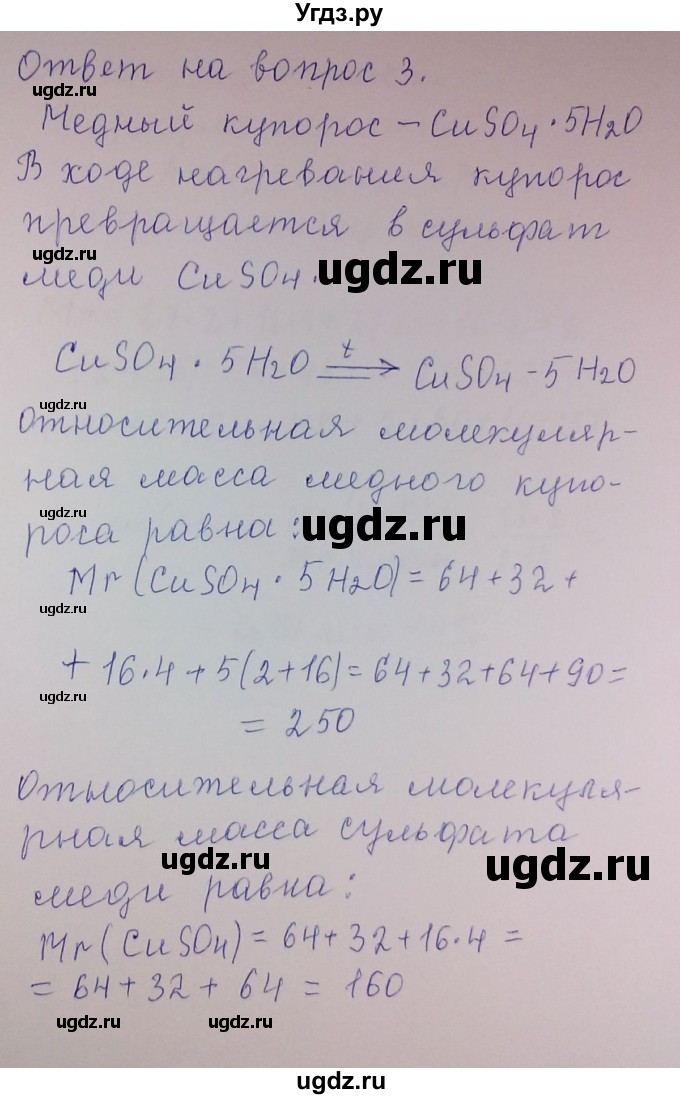 Угдз.ру
Ответ на вопрос 3.
ugdz.ru
Медный купорос – CuSO4 · 5H2O
В ходе нагревания купорос
ugdz.ru
превращается в сульфат
ugdz.ru
меди CuSO4.
ugdz.ru
CuSO4 · 5H2O t→ CuSO4 - 5H2O
ugdz.ru
Относительная молекуляр-
ная масса медного купо-
роса равна:
ugdz.ru
Mr(CuSO4 · 5H2O) = 64 + 32 +
ugdz.ru
+ 16·4 + 5(2+16) = 64 + 32 + 64 + 90 =
ugdz.ru
= 250
Относительная молекуля-
рная масса сульфата
ugdz.ru
ugdz.ru
меди равна:
Mr(CuSO4) = 64 + 32 + 16·4 =
= 64 + 32 + 64 = 160
ugdz.ru
ugdz.ru
ugdz.ru